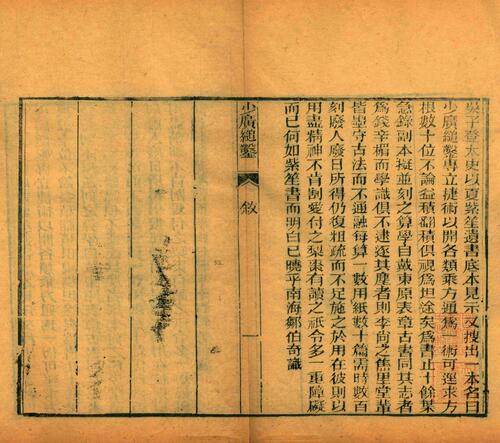 吳子登太史以夏紫笙遺書底本見示又搜出一本名曰
少廣縋鑿專立捷術以開各類乘方通爲一術可逕求方
根數十位不論益積翻積俱視爲坦途矣爲書止十餘葉
急錄副本擬並刻之算學自戴東原表章古書同其志者
爲錢辛楣而學識俱不逮逐其塵者則李尚之焦里堂輩
皆墨守古法而不通融每算一數用紙數十篇需時數百
刻廢人廢日所得仍復粗疏而不足施之於用在彼則以
用盡精神不肯割愛付之梨棗有讀之祇令多一重障礙
而已何如紫笙書而明白已曉乎南海鄒伯奇識
少廣縋鑿
敘
一